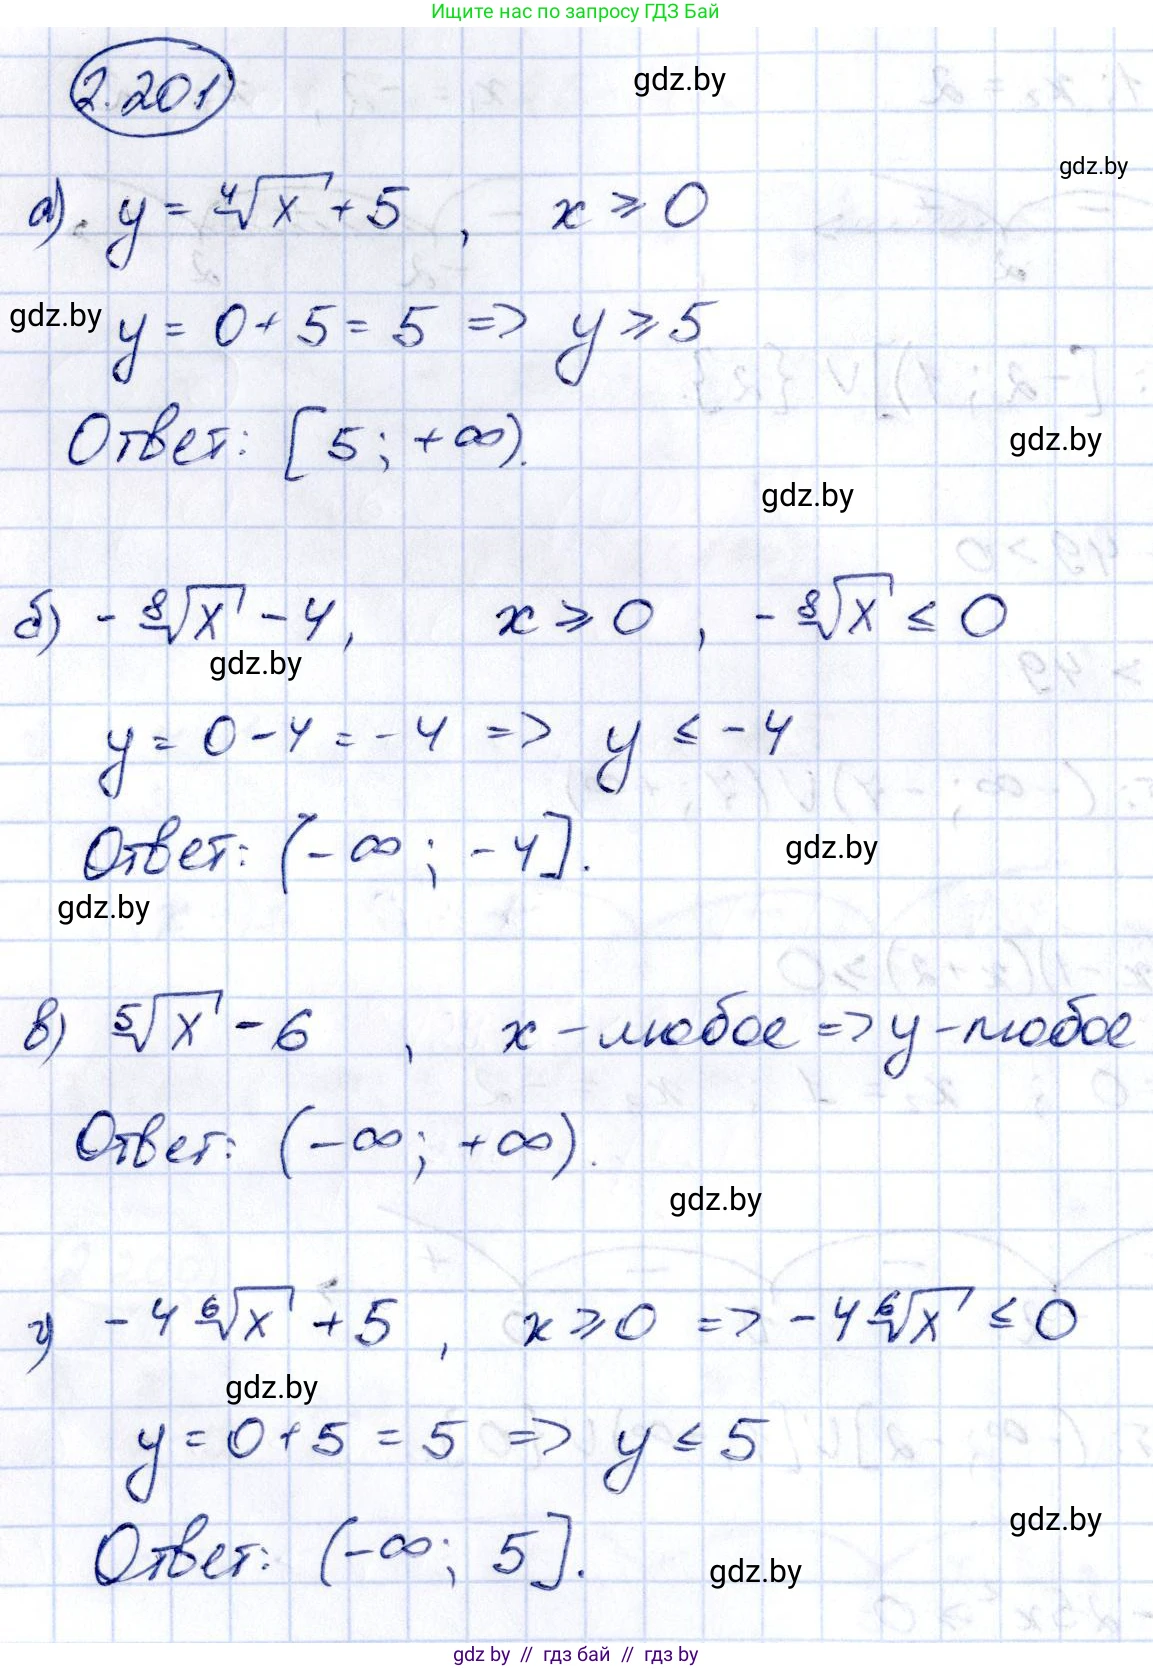 Ищите нас по запросу ГДЗ Бай
2.201
gdz.by
gdz.by
а) y = ⁴√x + 5, x ≥ 0
gdz.by
y = 0 + 5 = 5 => y ≥ 5
Ответ: [5; +∞).
gdz.by
gdz.by
б) - ⁸√x - 4, x ≥ 0, - ⁸√x ≤ 0
gdz.by
y = 0 - 4 = - 4 => y ≤ - 4
Ответ: (-∞; -4].
gdz.by
gdz.by
в) ⁵√x - 6, x - любое => y - любое
Ответ: (-∞; +∞).
gdz.by
г) - 4 ⁶√x + 5, x ≥ 0 => - 4 ⁶√x ≤ 0
gdz.by
y = 0 + 5 = 5 => y ≤ 5
gdz.by
Ответ: (-∞; 5].
gdz.by
gdz.by // гдз бай // гдз by